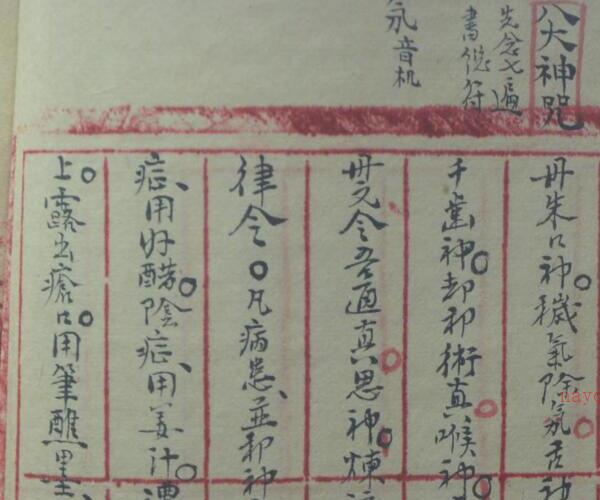 八大神咒
先念七遍
書後符
氛音机
丹朱口神。穢氣除氛。舌神
千齒神。却邪術真。喉神。
毋元令吾通真。思神。煉
律令。凡病患、並邪神
症、用好醋。陰症、用姜汁。
上。露出瘡口。用筆醮墨
nayo